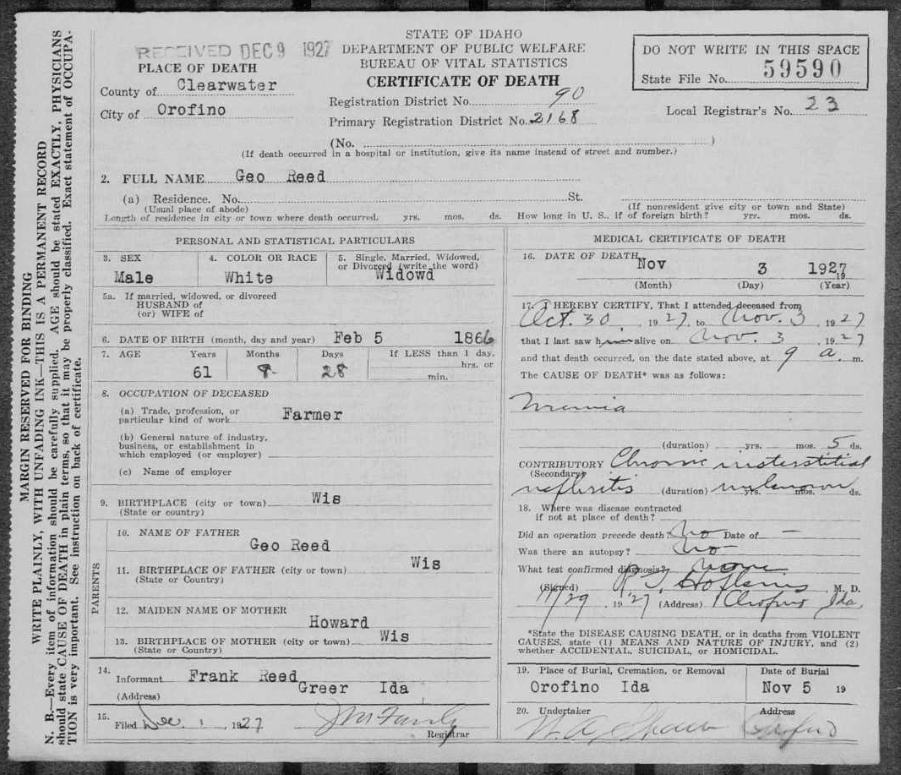 STATE OF IDAHO
DEPARTMENT OF PUBLIC WELFARE
BUREAU OF VITAL STATISTICS
CERTIFICATE OF DEATH
RECEIVED DEC 9 1927
PLACE OF DEATH
County of Clearwater
City of Orofino
Registration District No. 90
Primary Registration District No. 2168
DO NOT WRITE IN THIS SPACE
State File No. 59590
Local Registrar's No. 23
(No. )
(If death occurred in a hospital or institution, give its name instead of street and number.)
2. FULL NAME Geo Reed
(a) Residence. No. St.
(Usual place of abode) (If nonresident give city or town and State)
Length of residence in city or town where death occurred. yrs. mos. ds. How long in U. S., if of foreign birth? yrs. mos. ds.
PERSONAL AND STATISTICAL PARTICULARS
3. SEX 4. COLOR OR RACE 5. Single, Married, Widowed,
or Divorced (write the word)
Male White Widowd
5a. If married, widowed, or divorced
HUSBAND of
(or) WIFE of
6. DATE OF BIRTH (month, day and year) Feb 5 1866
7. AGE Years Months Days If LESS than 1 day,
hrs. or
min.
61 28
8. OCCUPATION OF DECEASED
(a) Trade, profession, or
particular kind of work Farmer
(b) General nature of industry,
business, or establishment in
which employed (or employer)
(c) Name of employer
9. BIRTHPLACE (city or town) Wis
(State or country)
PARENTS
10. NAME OF FATHER
Geo Reed
11. BIRTHPLACE OF FATHER (city or town) Wis
(State or Country)
12. MAIDEN NAME OF MOTHER
Howard
13. BIRTHPLACE OF MOTHER (city or town) Wis
(State or Country)
14.
Informant Frank Reed
(Address) Greer Ida
15.
Filed Dec. 1, 1927
Registrar
MEDICAL CERTIFICATE OF DEATH
16. DATE OF DEATH Nov 3 1927
19
(Month) (Day) (Year)
17. I HEREBY CERTIFY, That I attended deceased from
Oct. 30, 1927, to Nov. 3, 1927
that I last saw him alive on Nov. 3, 1927
and that death occurred, on the date stated above, at 9 a. m.
The CAUSE OF DEATH* was as follows:
Uremia
(duration) yrs. mos. 5 ds.
CONTRIBUTORY Chronic insterstitial
(Secondary)
nefhritis (duration) unknown yrs. mos. ds.
18. Where was disease contracted
if not at place of death?
Did an operation precede death? No Date of –
Was there an autopsy? No
What test confirmed diagnosis? None
(Signed) M. D.
11/29, 1927 (Address) Orofino Ida.
*State the DISEASE CAUSING DEATH, or in deaths from VIOLENT
CAUSES, state (1) MEANS AND NATURE OF INJURY, and (2)
whether ACCIDENTAL, SUICIDAL, or HOMICIDAL.
19. Place of Burial, Cremation, or Removal Date of Burial
Orofino Ida Nov 5 19
20. Undertaker Address
W. A. Shaw Orofino
MARGIN RESERVED FOR BINDING
WRITE PLAINLY, WITH UNFADING INK—THIS IS A PERMANENT RECORD
N. B.—Every item of information should be carefully supplied. AGE should be stated EXACTLY, PHYSICIANS
should state CAUSE OF DEATH in plain terms, so that it may be properly classified. Exact statement of OCCUPA-
TION is very important. See instruction on back of certificate.